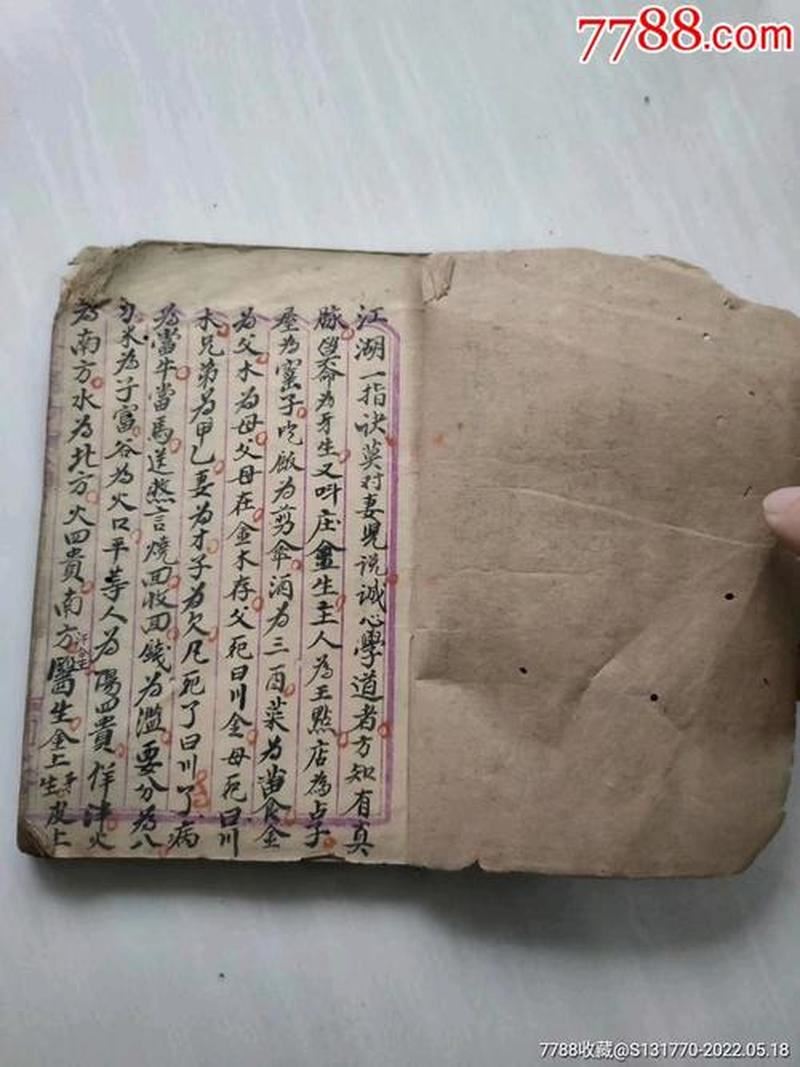 7788.com
江湖一指诀莫对妻児说誠心學道者方知有真
脉 命为牙生又呌庄金生主人為王點店為占子
屋为窰子吃飯为剪伞酒为三酉菜为苗食金
为父木为母父母在金木存父死曰川金母死曰川
木兄弟为甲乙妻为才子为欠凡死了曰川了病
为當牛當馬送 言燒回收回錢为濫要分为八
水為子富谷为火口平等人为陽四貴 津火
为南方水为北方火四貴南方醫生金上 皮上
7788收藏@S131770-2022.05.18